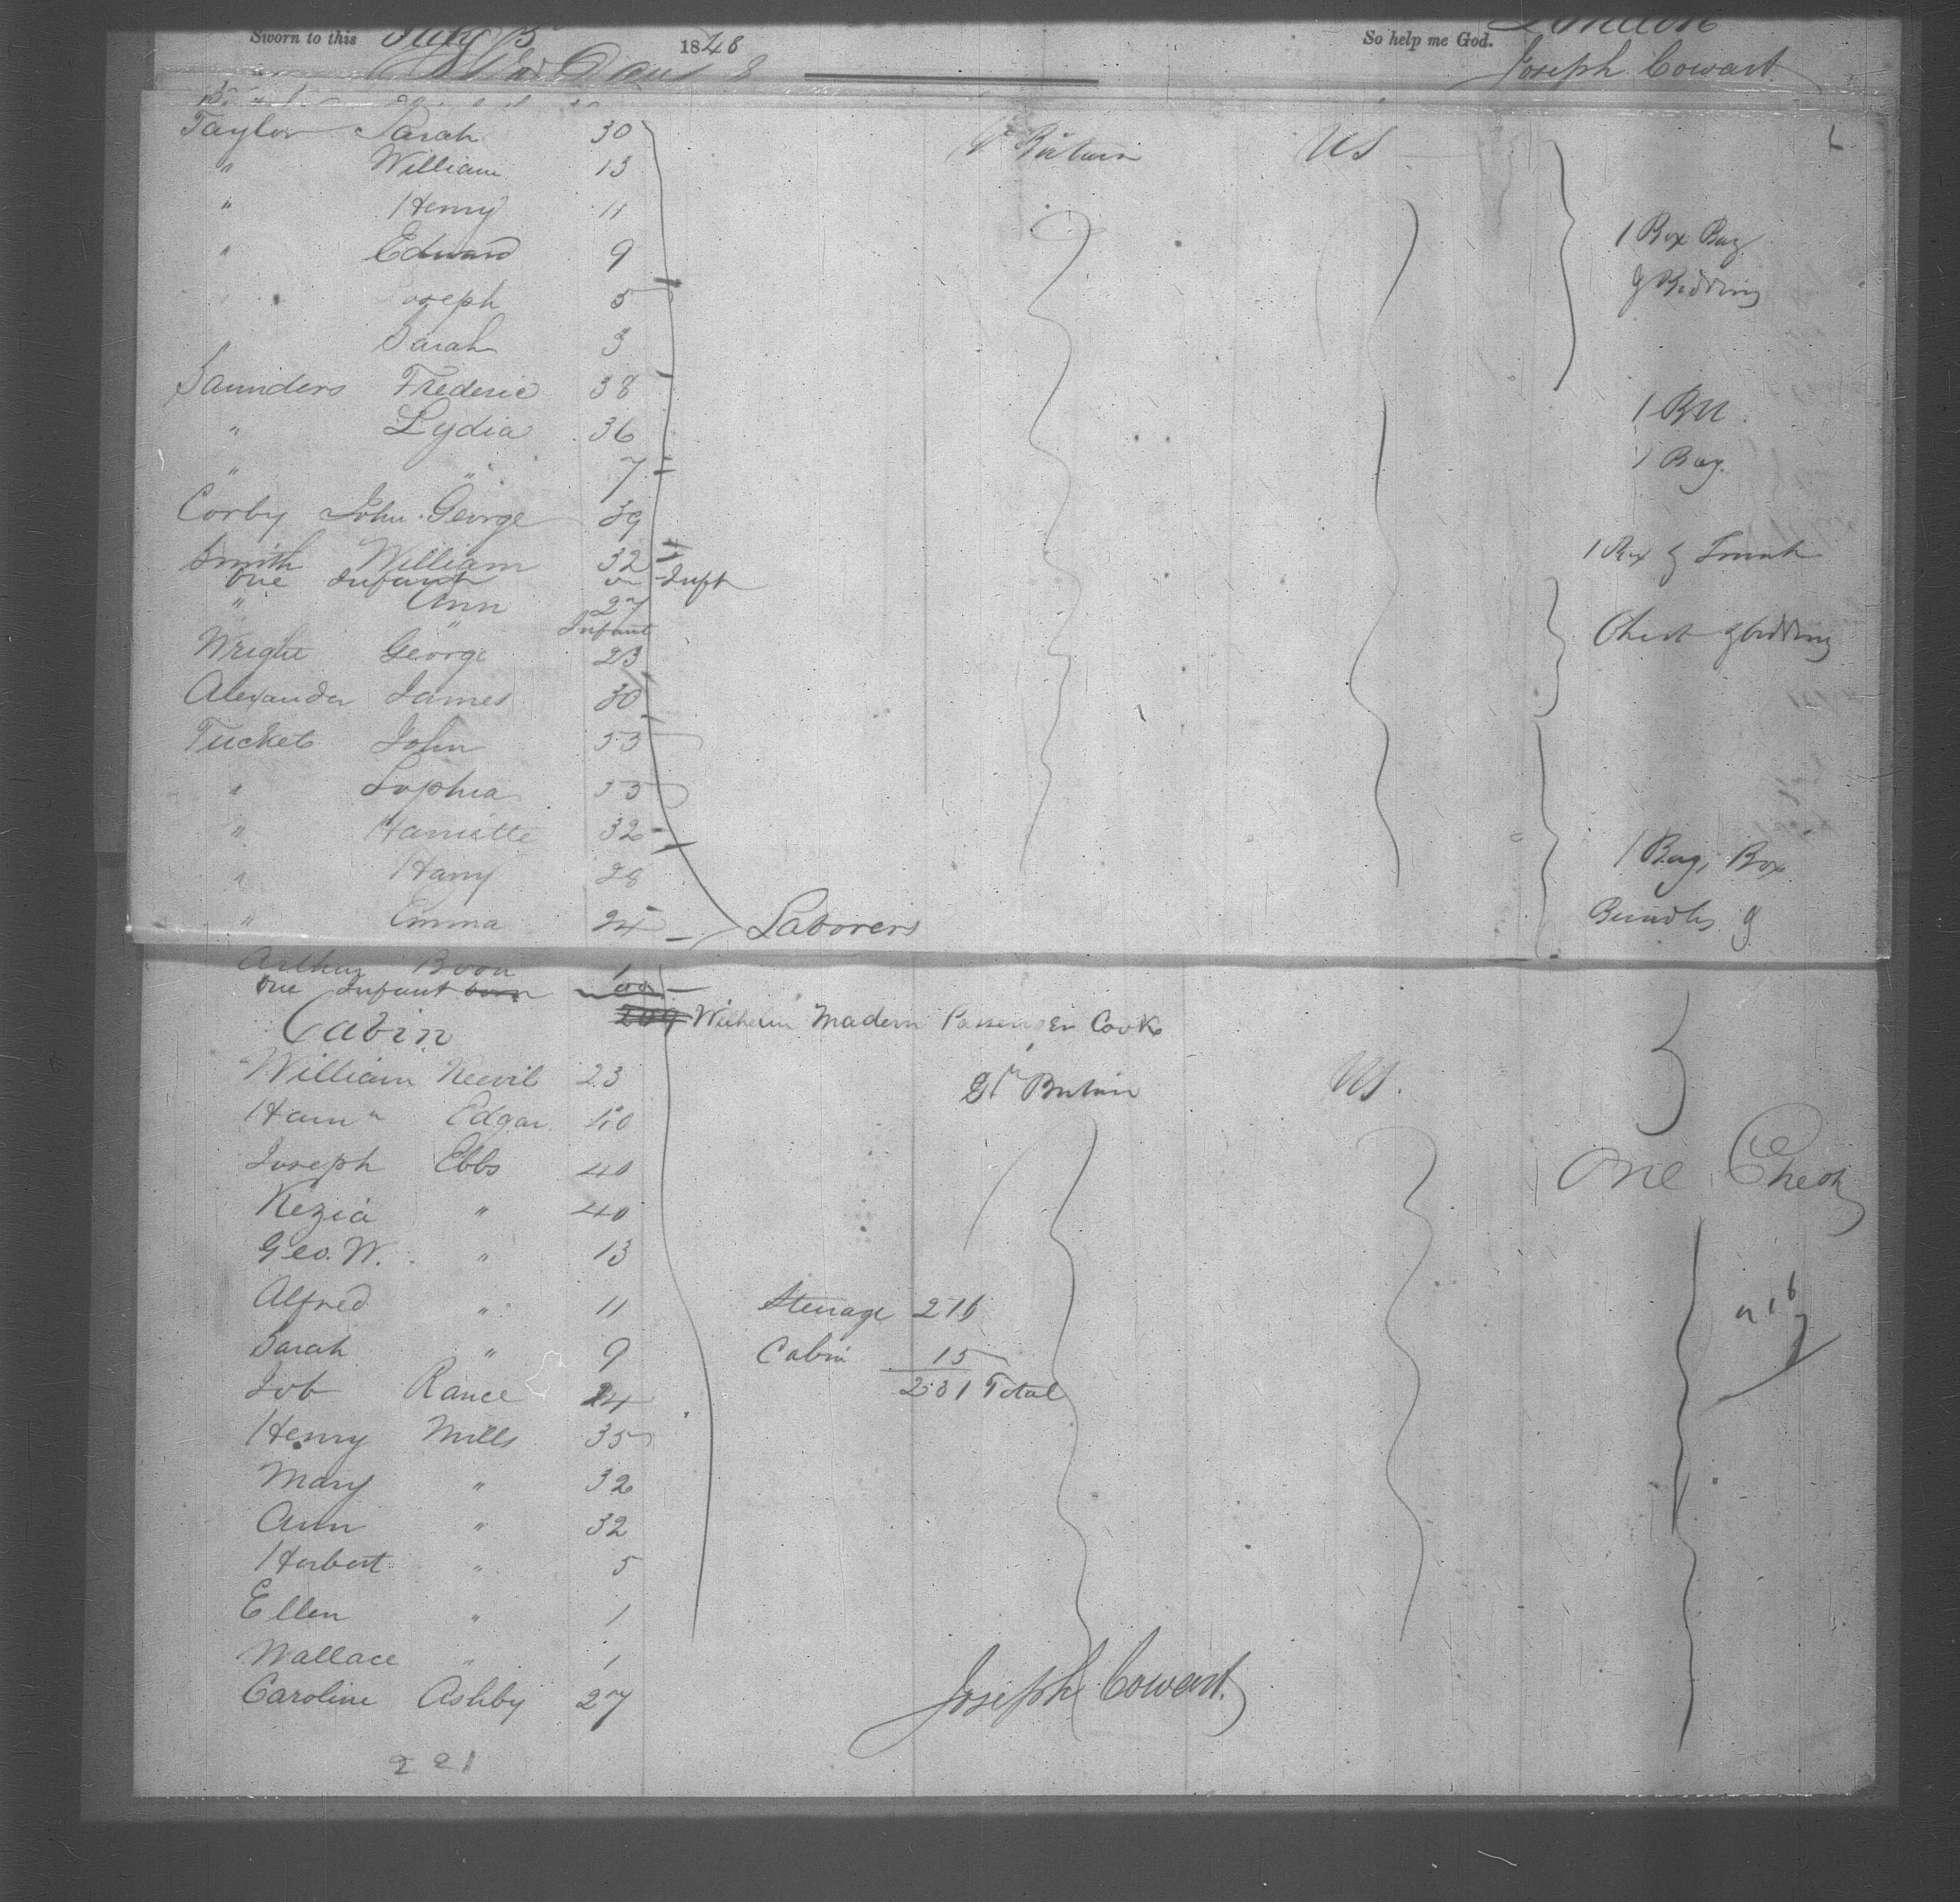 London
Sworn to this July 13 1848 So help me God.
Joseph Cowart
Taylor Sarah 30 Gt Britain US
" William 13
" Henry 11
" Edward 9 1 Box Bag
" Joseph 5 & Bedding
" Sarah 3
Saunders Frederic 38
" Lydia 36 1 Bll
" " 7 1 Bag
Corby John George 39
Smith William 32 1 Box & Trunk
One Infant Inft
" Ann 27
" Infant
Chest & bedding
Wright George 23
Alexander James 30
Tucket John 53
" Sophia 55
" Harriette 32
" Harry 28 1 Bag, Box
" Emma 24 Laborers Bundles &
Arthur Boon 1
One Infant born
Cabin 209 Wilhelm Madern Passenger Cook
William Neevil 23 Gt Britain US.
Ham " Edgar 40
Joseph Ebbs 40 One Chest
Kezia " 40
Geo. W. " 13
Alfred " 11 Steerage 216
Sarah " 9 Cabin 15
Job Rance 24 231 Total
Henry Mills 35
Mary " 32
Ann " 32
Herbert " 5
Ellen " 1
Wallace " 1
Caroline Ashby 27 Joseph Cowart.
221